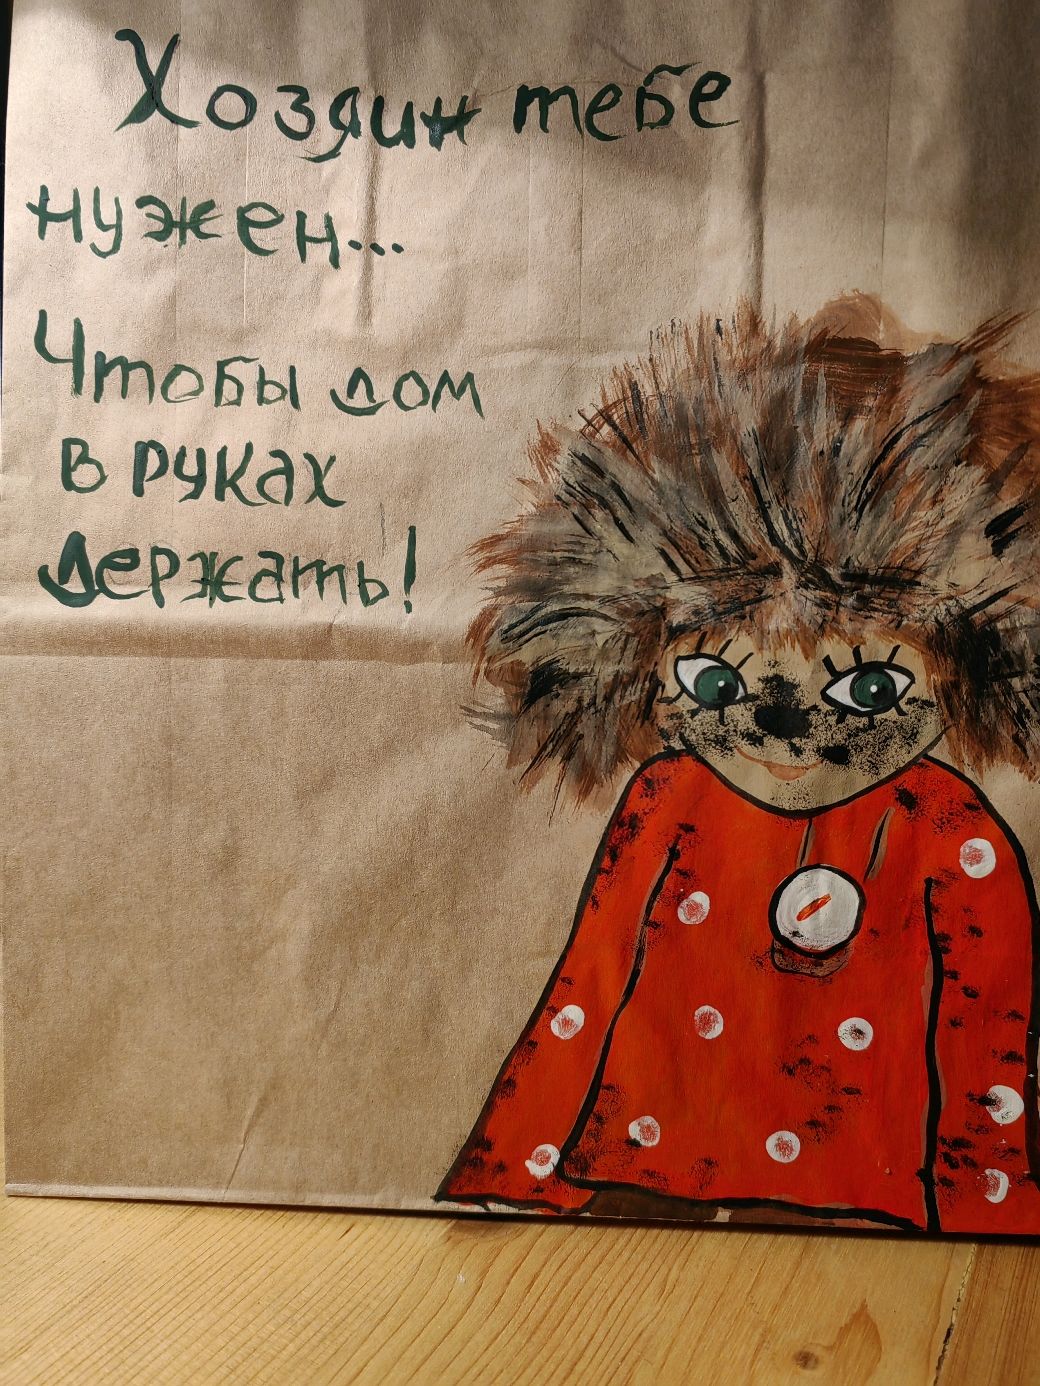 Хозяин тебе
нужен...
Чтобы дом
в руках
держать!